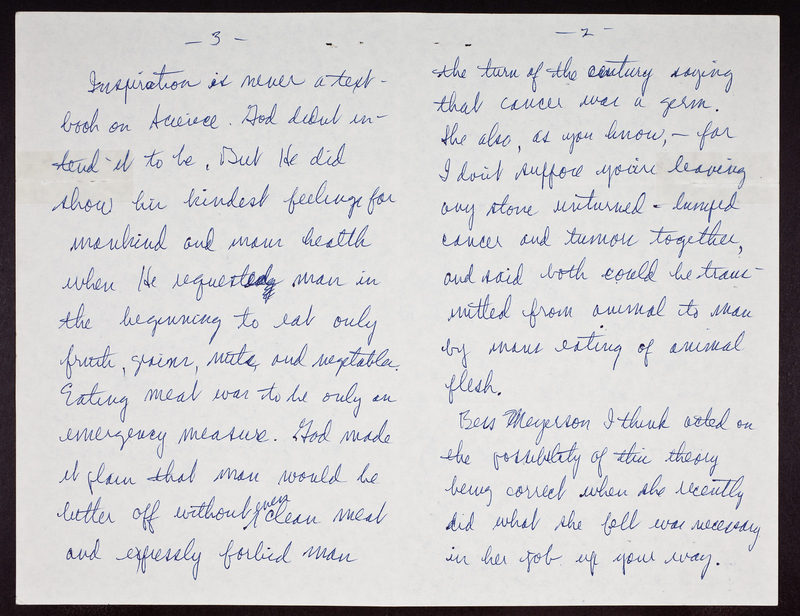 - 3 -
Inspiration is never a text-
book on Science. God didnt in-
tend it to be. But He did
show his kindest feelings for
mankind and mans health
when He requested man in
the beginning to eat only
fruits, grains, nuts, and vegetables.
Eating meat was to be only an
emergency measure. God made
it plain that man would be
better off without even clean meat
and expressly forbid man
- 2 -
the turn of the century saying
that cancer was a germ.
She also, as you know, - for
I don't suppose you're leaving
any stone unturned - lumped
cancer and tumors together,
and said both could be trans-
mitted from animal to man
by mans eating of animal
flesh.
Bess Meyerson I think acted on
the possibility of this theory
being correct when she recently
did what she felt was necessary
in her job up your way.